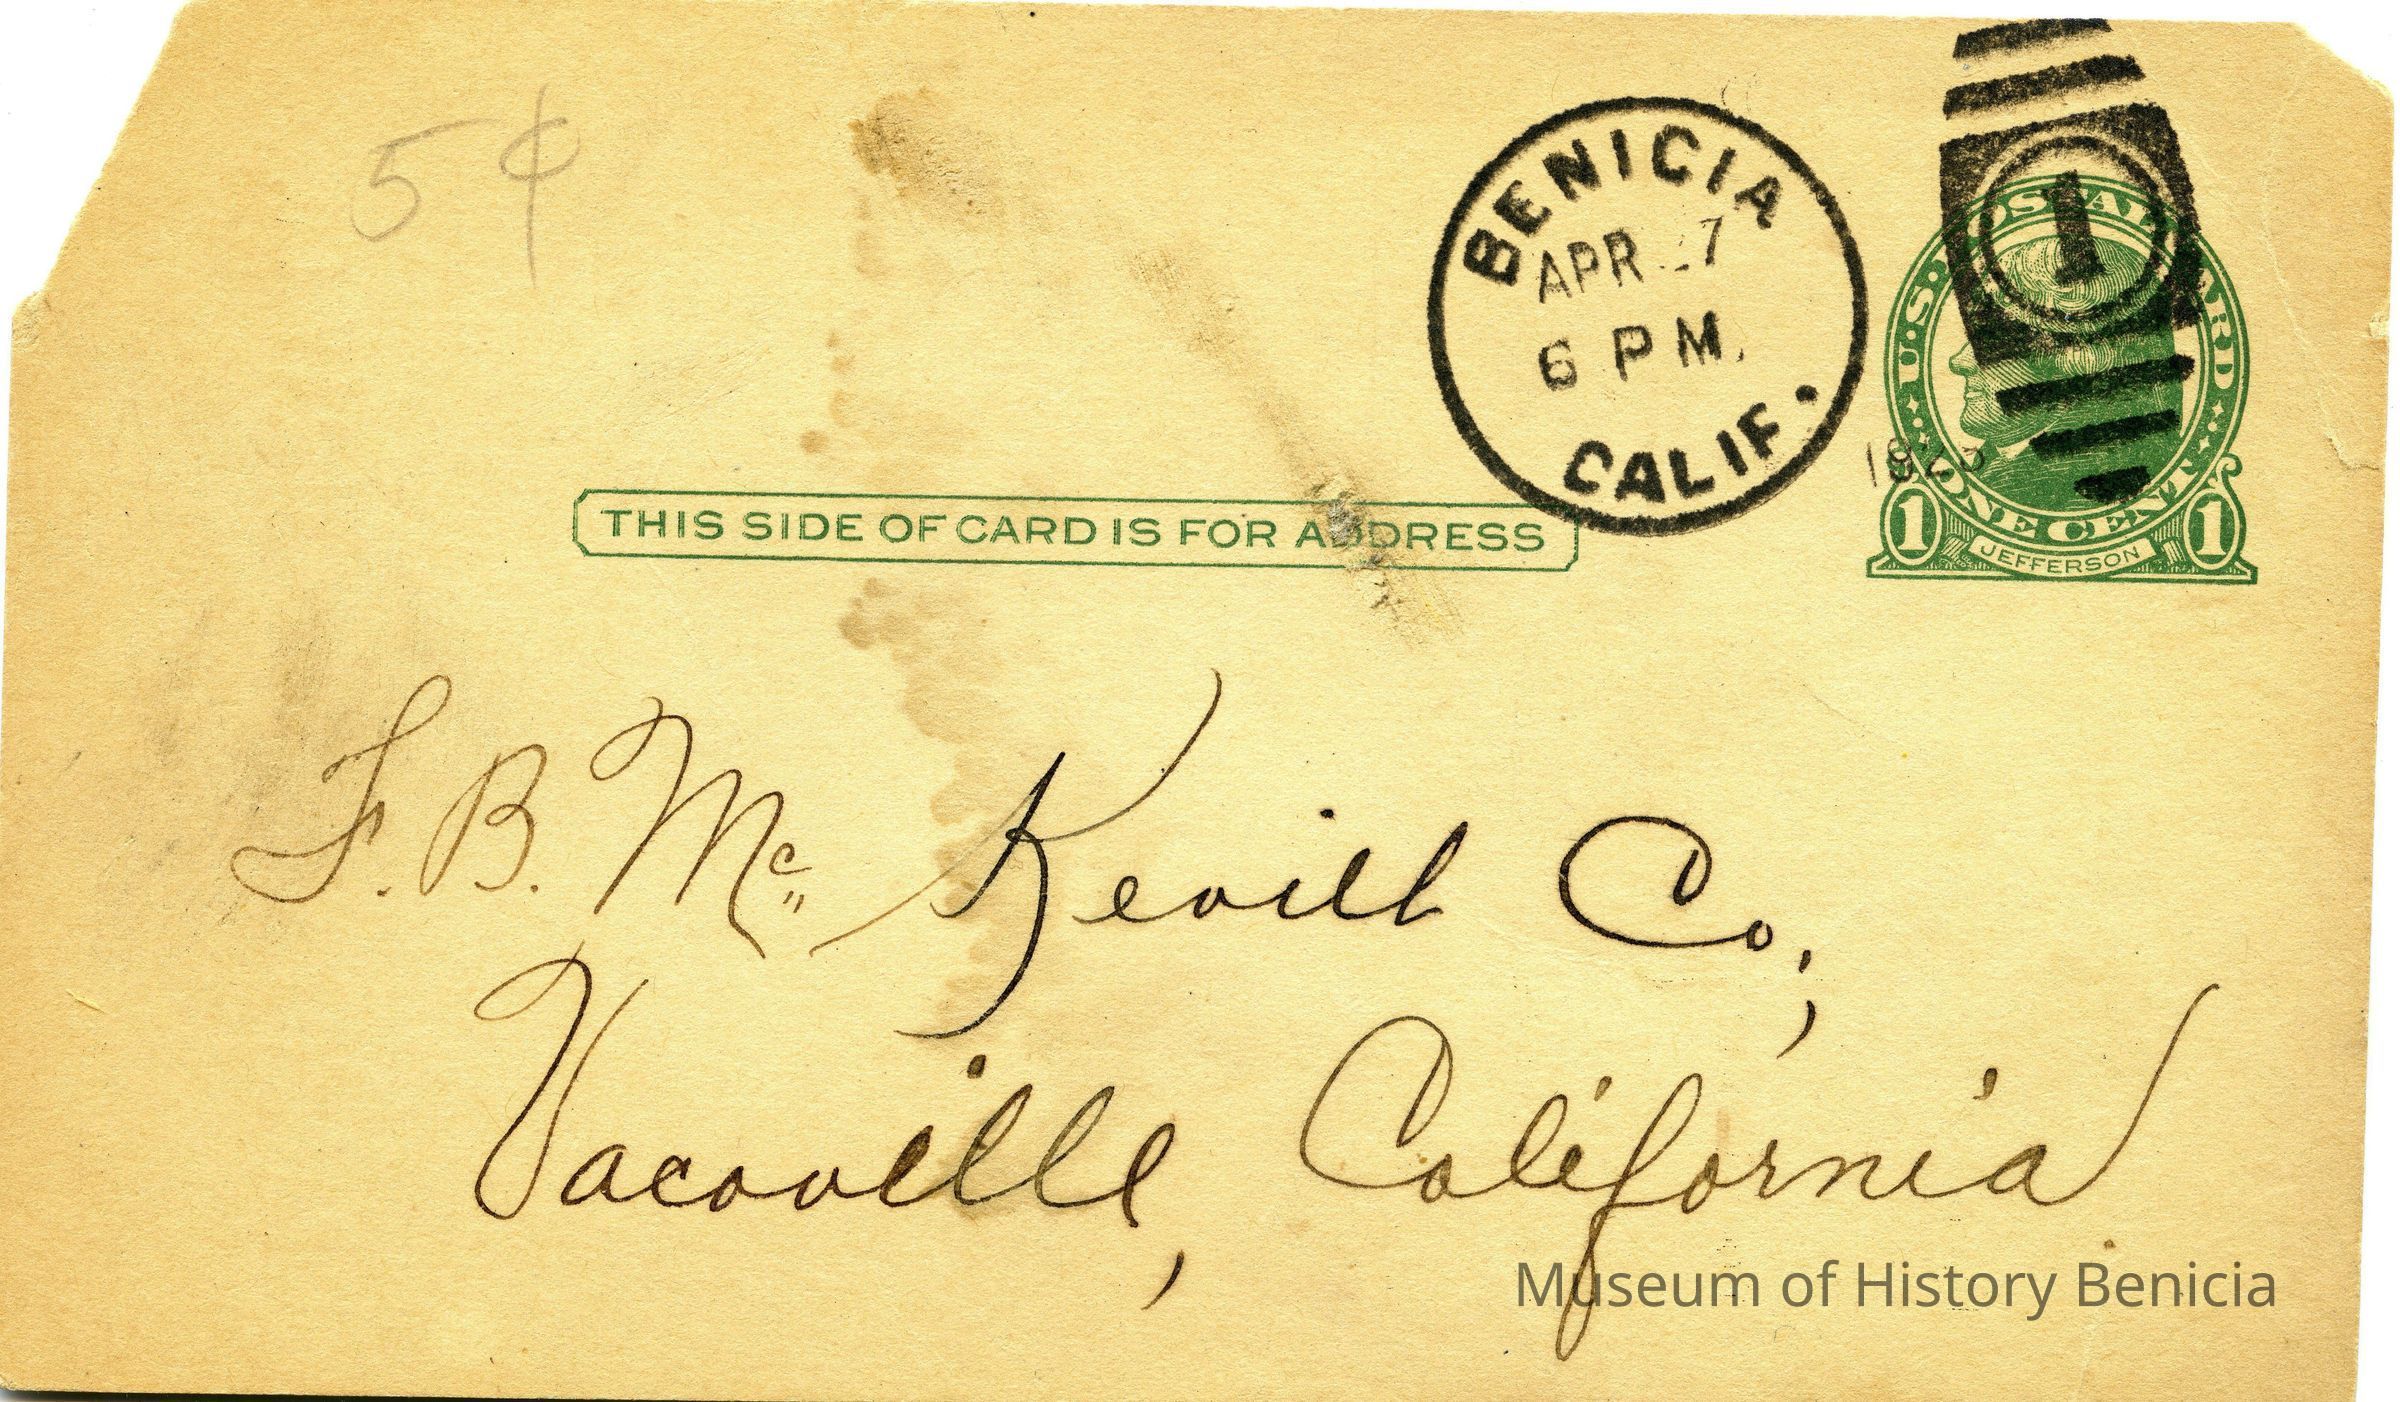 5¢
BENICIA
APR 27
6 PM.
CALIF.
U.S. POSTAL CARD
1
ONE CENT
1 JEFFERSON 1
THIS SIDE OF CARD IS FOR ADDRESS
F. B. Mc Kevitt Co.,
Vacaville, California
Museum of History Benicia